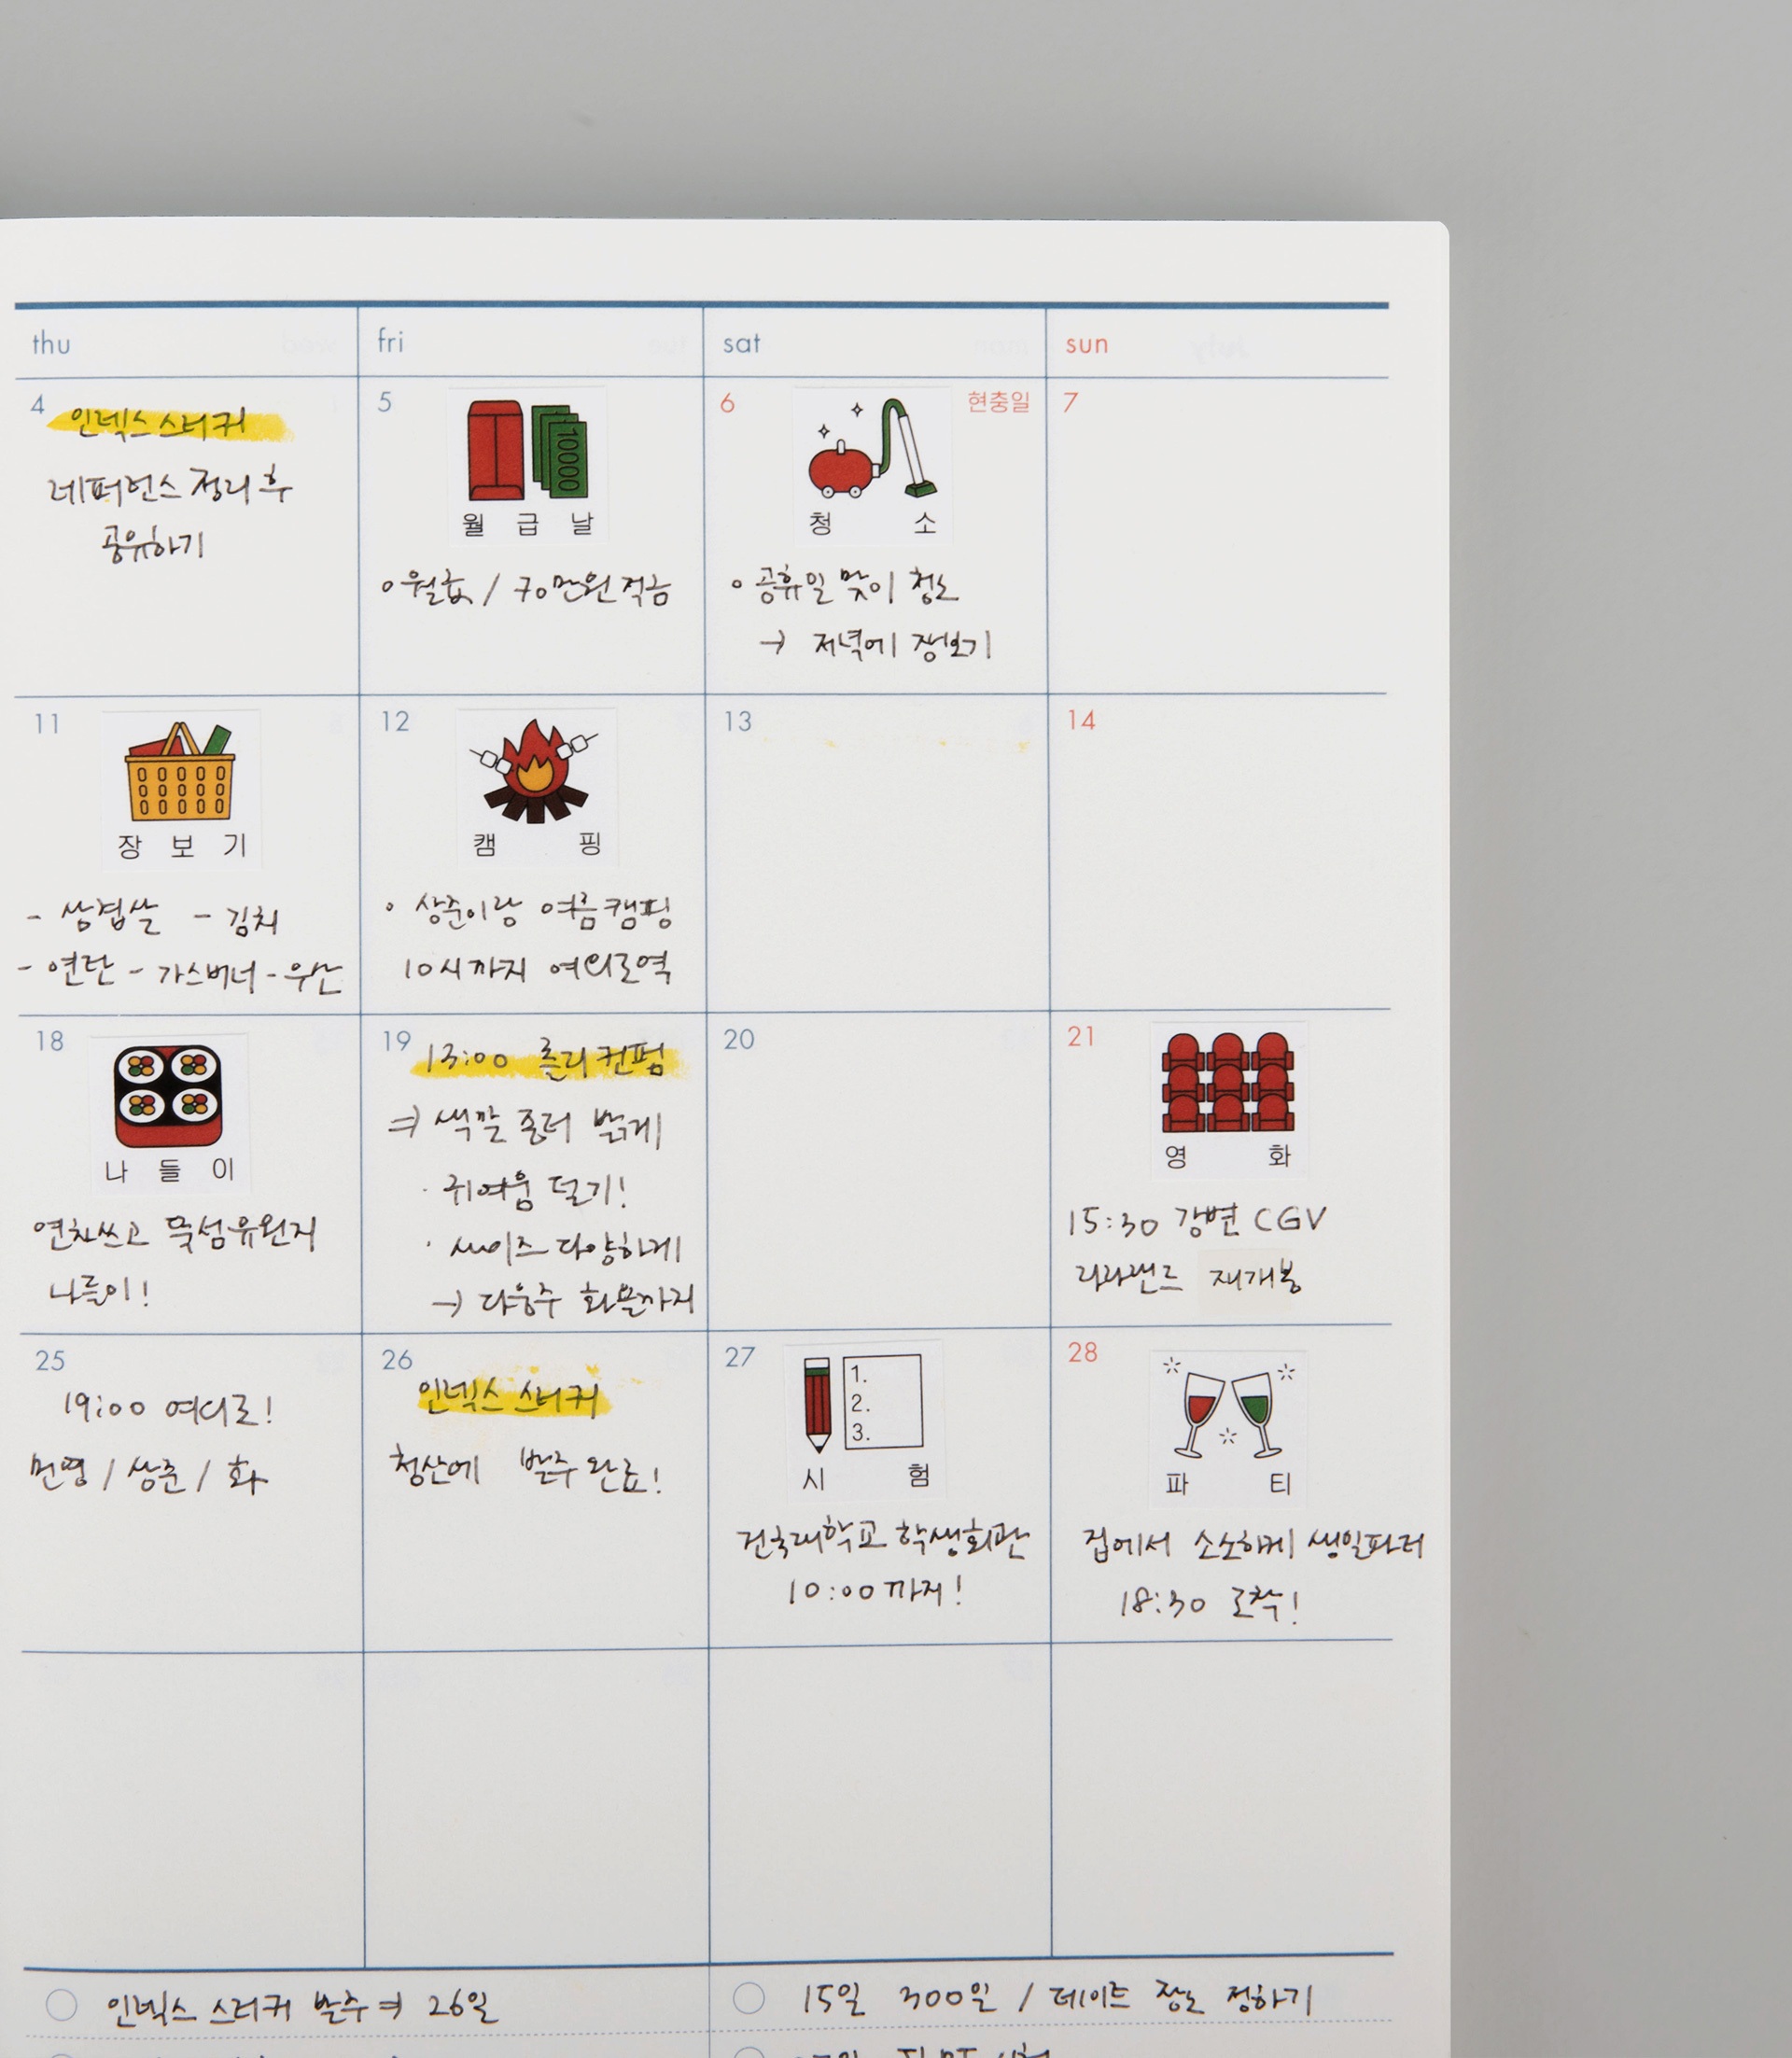 thu fri sat sun
4 인덱스 스티커
레퍼런스 정리 후
공유하기
5
10000
월 급 날
월급 / 70만원 적금
6 현충일
청 소
공휴일 맞이 청소
→ 저녁에 장보기
7
11
장 보 기
- 삼겹살 - 김치
- 연탄 - 가스버너 - 우산
12
캠 핑
상준이랑 여름캠핑
10시까지 여의도역
13
14
18
나 들 이
연차쓰고 뚝섬유원지
나들이!
19 13:00 홀리컨펌
⇒ 색깔 좀더 밝게
· 귀여움 덜기!
· 싸이즈 다양하게
→ 다음주 화욜까지
20
21
영 화
15:30 강변 CGV
라라랜드 재개봉
25
19:00 여의도!
민영 / 상준 / 화
26 인덱스 스티커
청산에 발주 완료!
27
1.
2.
3.
시 험
건국대학교 학생회관
10:00 까지!
28
파 티
집에서 소소하게 생일파티
18:30 도착!
인덱스 스티커 발주 ⇒ 26일
15일 300일 / 데이트 장소 정하기